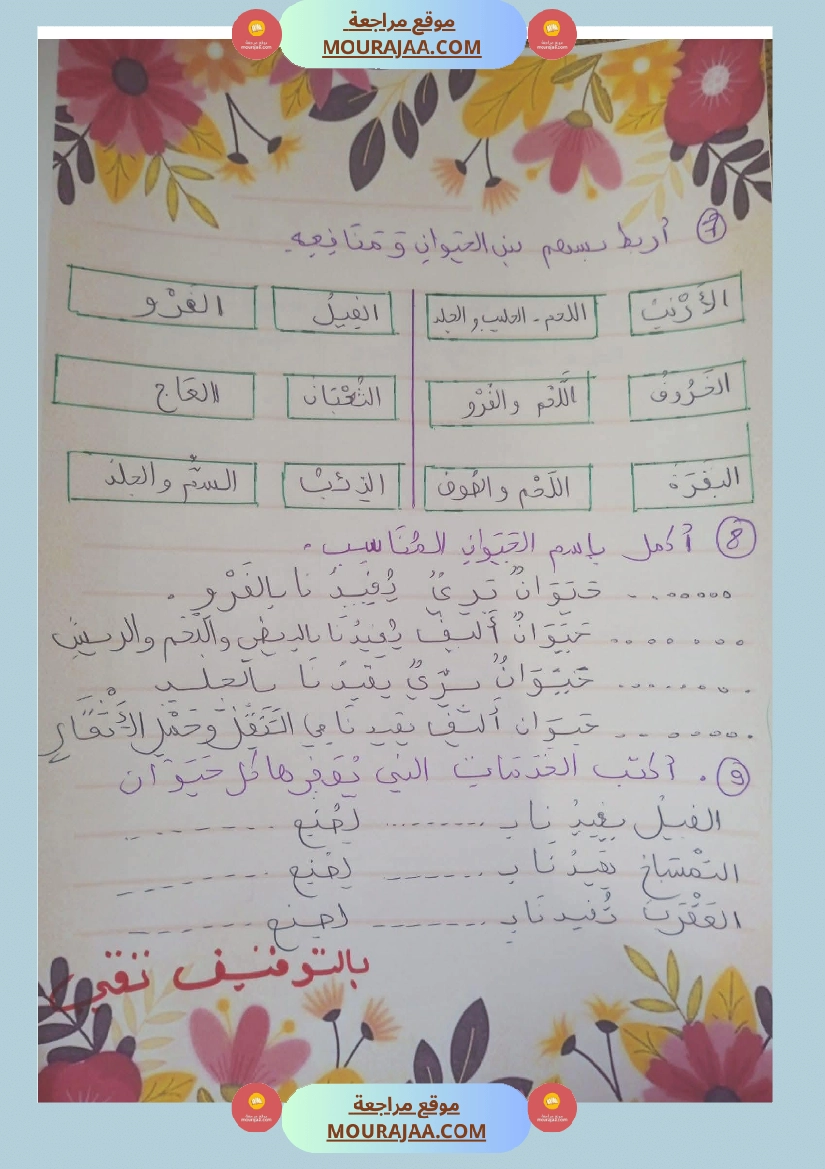 موقع مراجعة
MOURAJAA.COM
7 أربط بسهم بين الحيوان وَ مَنَافِعِهِ
الأَرْنَبُ اللحم - الحليب و الجلد الفِيلُ الفَرْو
الخَرُوفُ اللَّحْم و الفَرْو الثُّعْبَان العَاج
البَقَرَة اللَّحْم و الصُوف الذِئْبُ السُّم و الجلد
8 أكمل بإسم الحَيَوَانِ المُنَاسِبِ .
........ حَيَوَانٌ بَرِيٌّ يُفِيدُ نا بِالفَرْوِ .
........ حَيَوَانٌ أَلِيفٌ يُفِيدُنَا بالبيض واللَّحْم والريش
........ حَيَوَانٌ بَرِّيٌّ يفيدُ نَا بالجلد
........ حيوان أَليفٌ يفيد نَا في التَنَقُلِ وَحَمْلِ الأَثْقَالِ
9 . أكتب الخَدَمَاتِ التي يُوَفِرها كُل حَيَوَان
الفيلُ يفيدُ نا ب ........ لصُنع ........
التمْسَاح يفيدُ نَا ب ........ لصُنع ........
العَقْرَبُ تُفيد نَا ب ........ لصنع ........
بالتوفيق
موقع مراجعة
MOURAJAA.COM